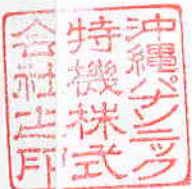 沖縄パナソニック
特機株式
会社之印